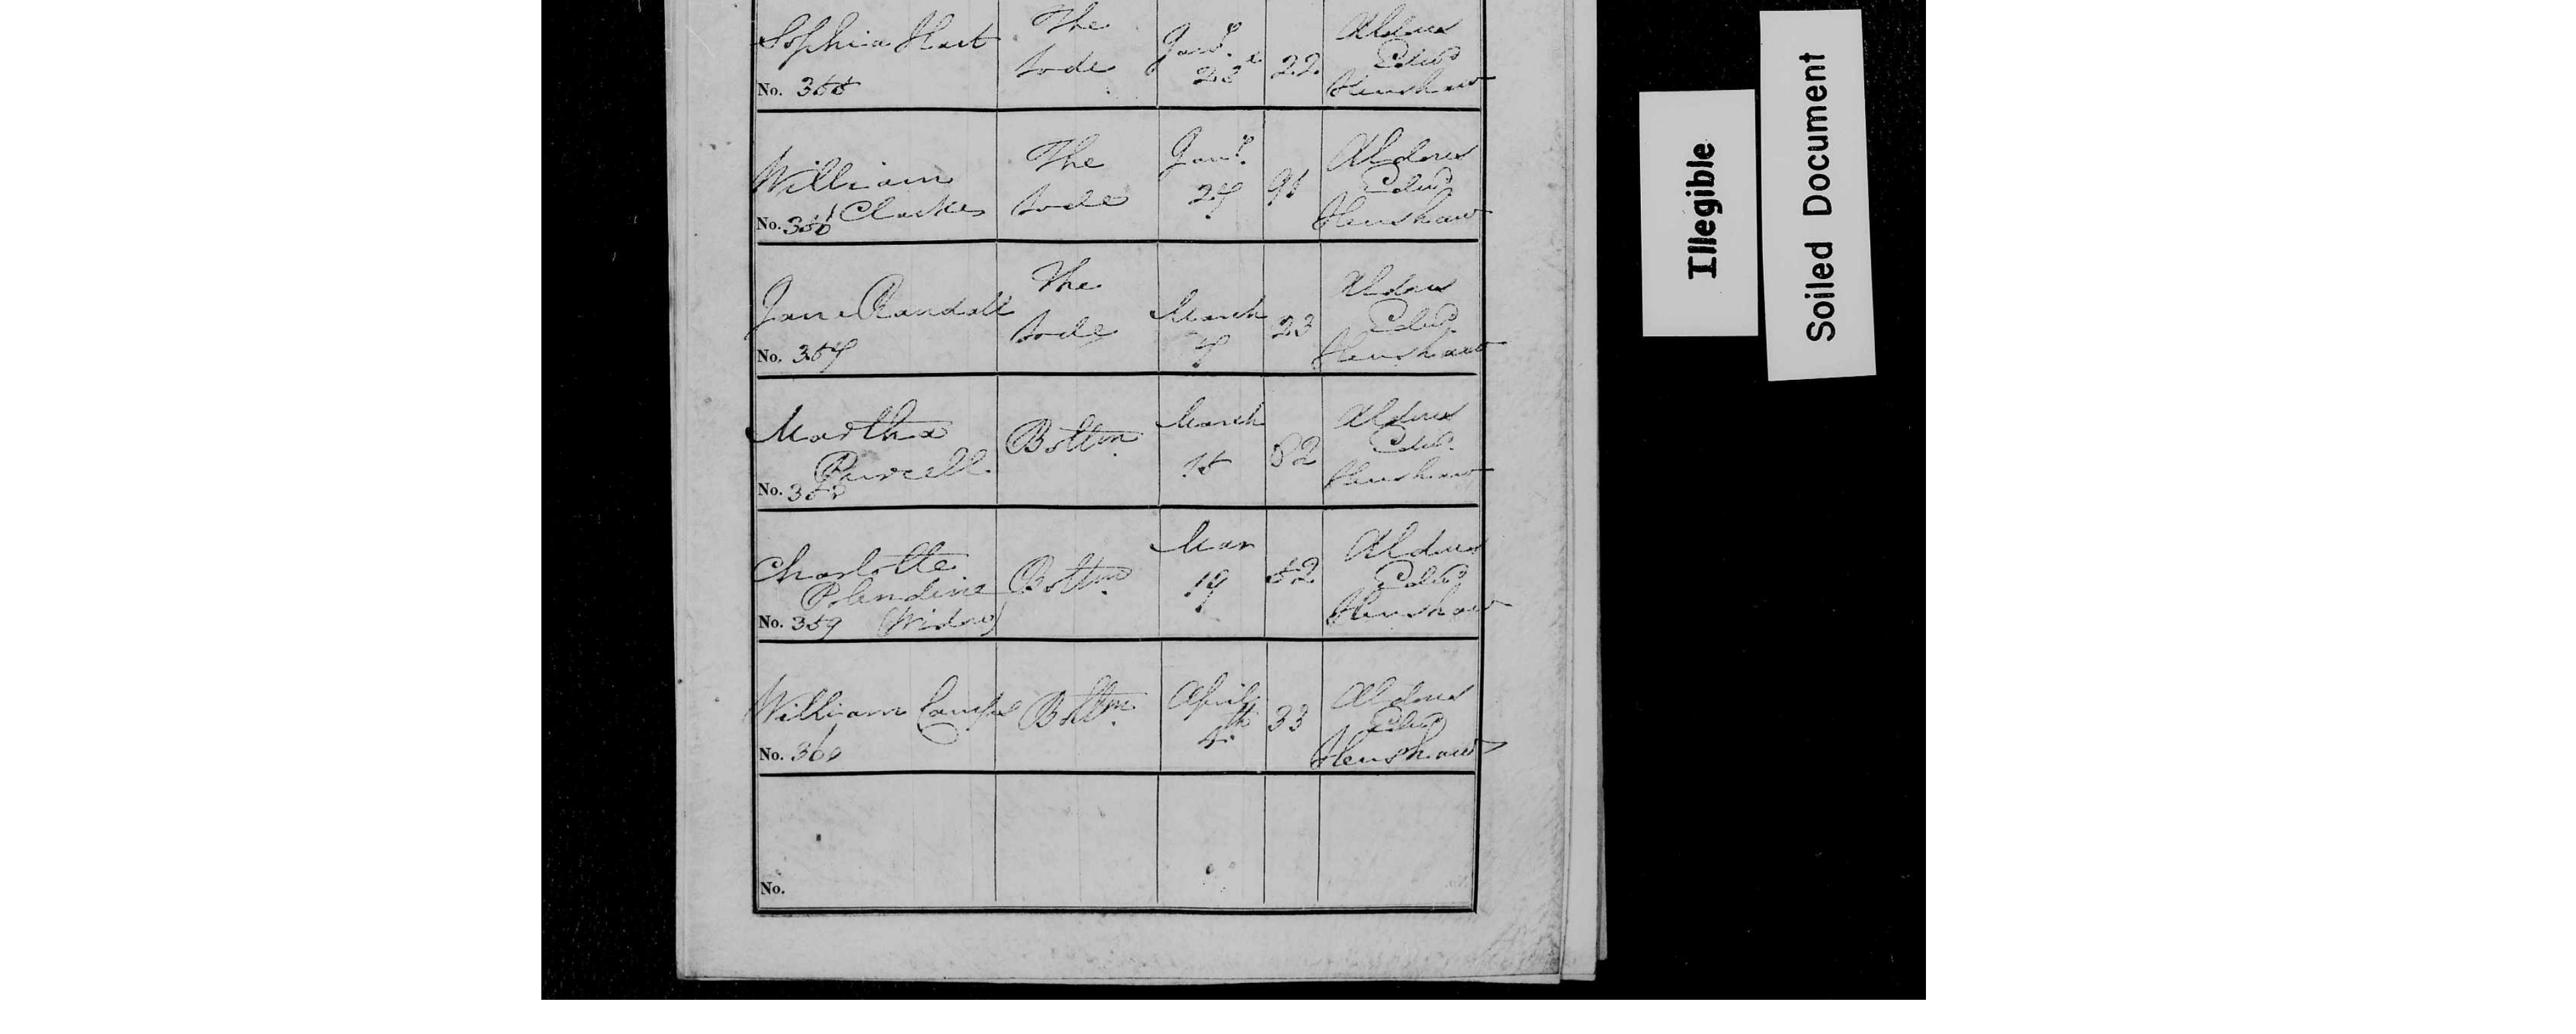 Sophia Hart
No. 355
The
Lode
Jany.
22
Aldous
Edwd
Henshaw
William
Clarke
No. 356
The
Lode
Jany.
27
91
Aldous
Edwd
Henshaw
Jane Randall
No. 357
The
Lode
March
7
23
Aldous
Edwd
Henshaw
Martha
Purcell
No. 358
Bottm.
March
15
Aldous
Edwd
Henshaw
Charlotte
Polendine
No. 359 (Widow)
Bottm.
Mar
19
52
Aldous
Edwd
Henshaw
William
No. 360
Bottm.
April
4th
33
Aldous
Edwd
Henshaw
No.
Illegible
Soiled Document